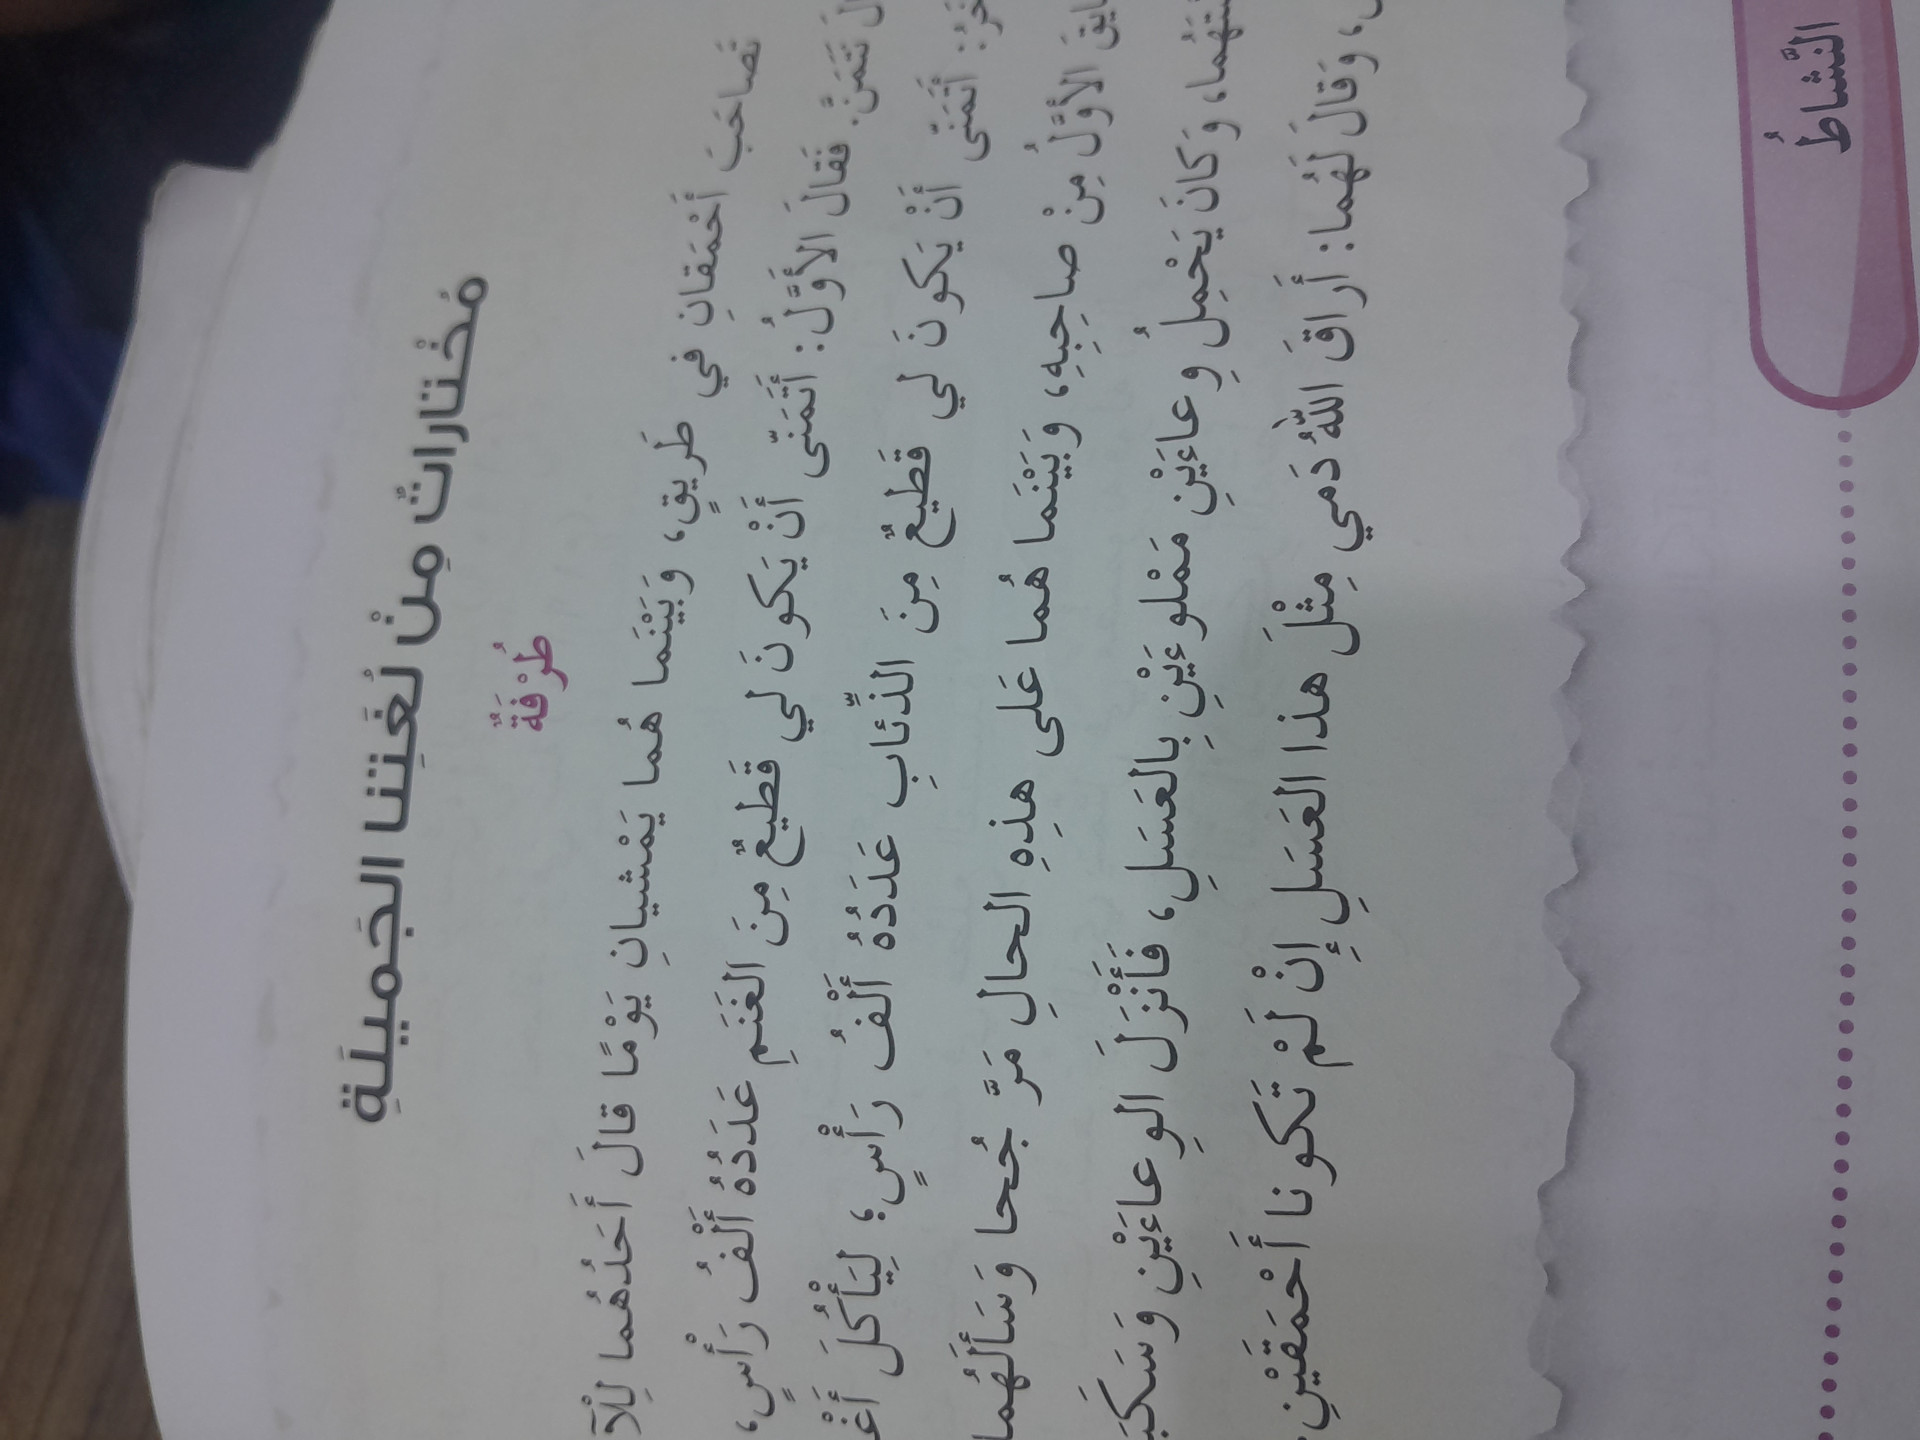 مُخْتاراتٌ مِنْ لُغَتِنا الجَميلَةِ
طُرْفَةٌ
تَصاحَبَ أَحْمَقانِ في طَريقٍ، وَبَيْنَما هُما يَمْشيانِ يَوْمًا قالَ أَحَدُهُما
نَتَمَنَّ. فَقالَ الأَوَّلُ: أَتَمَنّى أَنْ يَكونَ لي قَطيعٌ مِنَ الغَنَمِ عَدَدُهُ أَلْفُ رَأْسٍ،
أَتَمَنّى أَنْ يَكونَ لي قَطيعٌ مِنَ الذِّئابِ عَدَدُهُ أَلْفُ رَأْسٍ؛ لِيَأْكُلَ
الأَوَّلُ مِنْ صاحِبِهِ، وَبَيْنَما هُما عَلى هذِهِ الحالِ مَرَّ جُحا وَسَأَلَهُما
وَكانَ يَحْمِلُ وِعاءَيْنِ مَمْلوءَيْنِ بِالعَسَلِ، فَأَنْزَلَ الوِعاءَيْنِ
وَقالَ لَهُما: أَراقَ اللهُ دَمي مِثْلَ هذا العَسَلِ إِنْ لَمْ تَكونا أَحْمَقَيْنِ.
النَّشاطُ